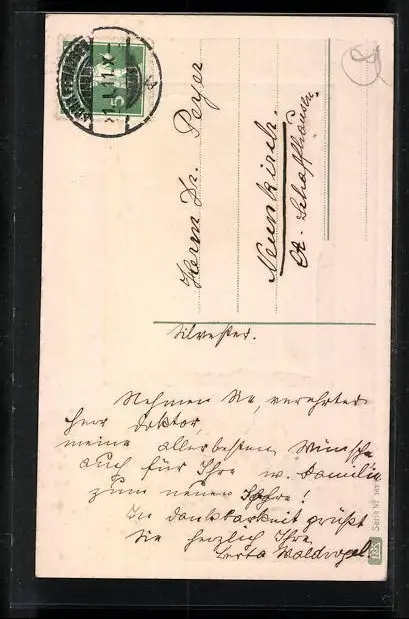 Herrn Dr. Peyer
Neunkirch.
Kt. Schaffhausen.
Silvester.
Nehmen Sie, verehrter
Herr Doktor,
meine allerbesten Wünsche
auch für Ihre w. Familie
zum neuen Jahre!
In Dankbarkeit grüßt
Sie herzlich Ihre
Berta Waldvogel.
5
Serie No